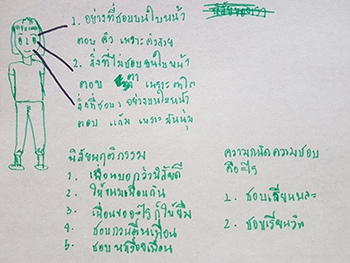 1. อย่างที่ชอบบนใบหน้า
ตอบ คิ้ว เพราะคิ้วสวย
2. สิ่งที่ไม่ชอบบนใบหน้า
ตอบ ตา เพราะ
สิ่งที่ชอบ อย่างบนใบหน้า
ตอบ แก้ม เพราะมันนุ่ม
นิสัยพฤติกรรม
1. เพื่อนบอกว่านิสัยดี
2. ให้ขนมเพื่อนกิน
3. เพื่อนขออะไรก็ให้ยืม
4. ชอบกวนตีนเพื่อน
5. ชอบ เพื่อน
ความถนัดความชอบ
คืออะไร
1. ชอบเรียนพละ
2. ชอบเรียนวิท